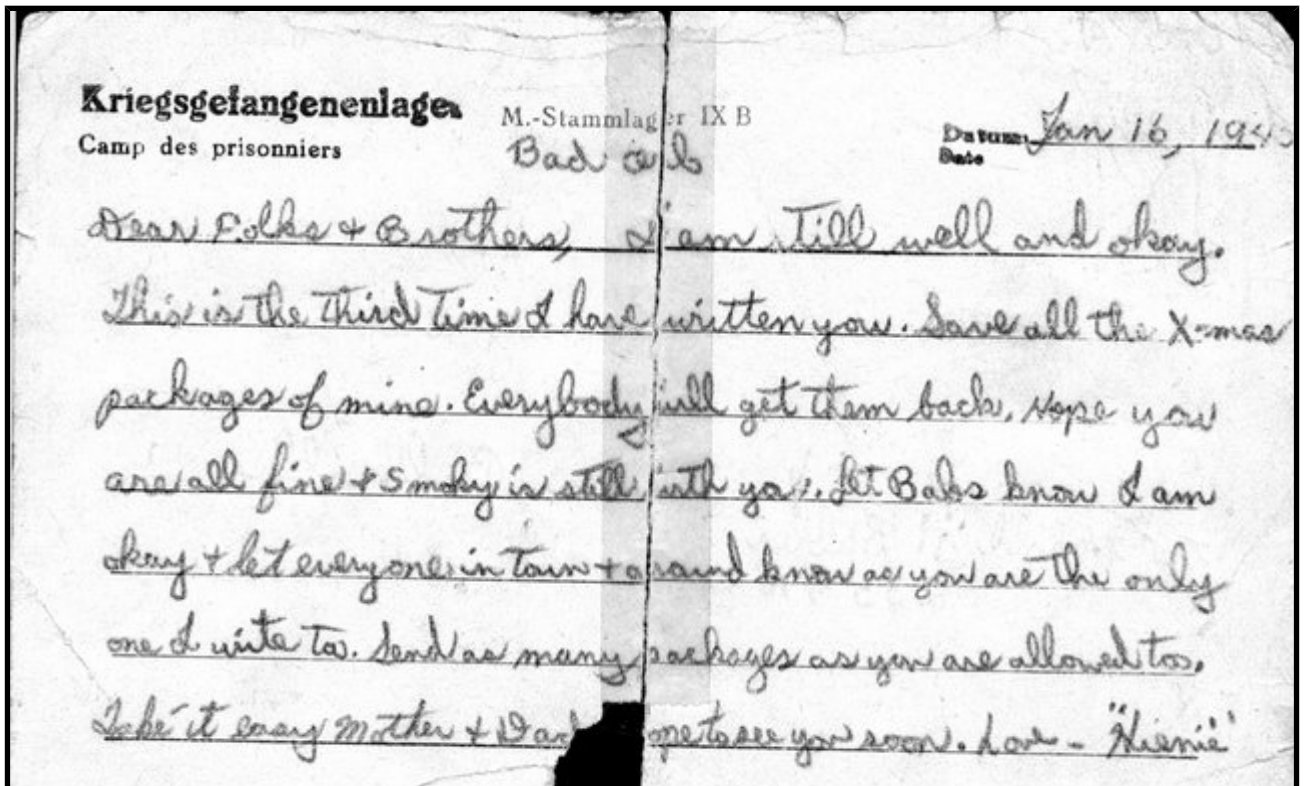 Kriegsgefangenenlager M.-Stammlager IX B
Camp des prisonniers Bad orb Datum: Date Jan 16, 1945
Dear Folks + Brothers, I am still well and okay.
This is the third time I have written you. Save all the X-mas
packages of mine. Everybody will get them back. Hope you
are all fine + Smoky is still with you. Let Babs know I am
okay + let everyone in Town + around know as you are the only
one I write to. Send as many packages as you are allowed too.
Take it easy Mother + Dad ope to see you soon. Love - "Hienie"